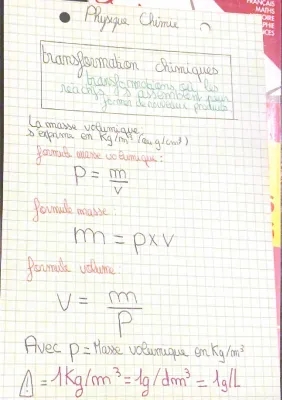 FRANCAIS
MATHS
Physique Chimie
transformation chimiques
transformations où les
réactifs s'assemblent pour
former de nouveaux produits
La masse volumique
s'exprime en Kg/m³ (ou g/cm³)
formule masse volumique :
P = m/v
formule masse :
m = p x v
formule volume :
V = m/P
Avec p = Masse volumique en Kg/m³
⚠ = 1Kg/m³ = 1g/dm³ = 1g/L